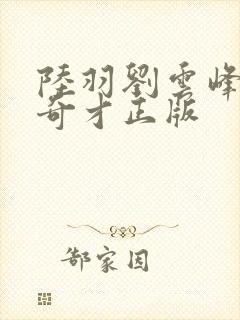 陸羽劉雲峰
奇才正版
郜家因